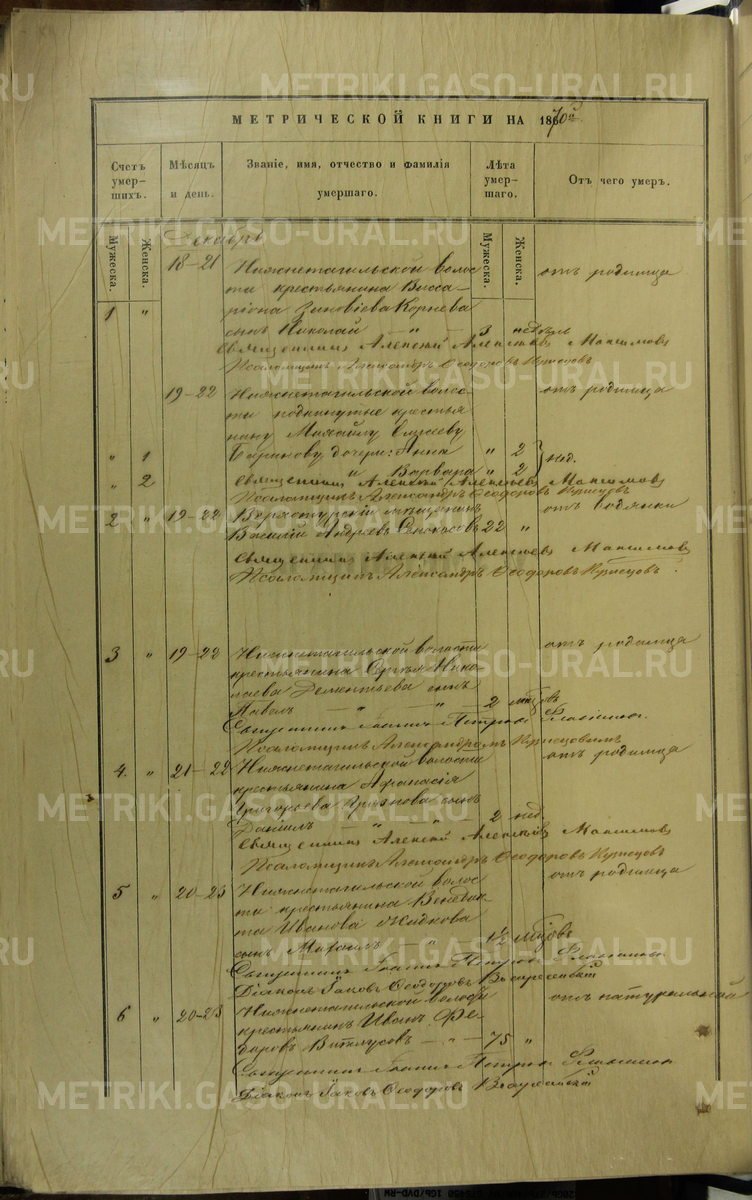 МЕТРИЧЕСКОЙ КНИГИ НА 1870й
Счетъ умер- шихъ. Мѣсяцъ и день. Званіе, имя, отчество и фамилія умершаго. Лѣта умер- шаго. Отъ чего умеръ.
Мужеска. Женска. Мужеска. Женска.
Декабрь
18-21 Нижнетагильской волос отъ родимца
ти крестьянина Висса-
1 " ріона Зиновіева Корнева
сынъ Николай — " — 3 "
Священникъ Алексѣй Алексѣевъ Максимовъ
Псаломщикъ Александръ Ѳеодоровъ
19-22 Нижнетагильской волос отъ родимца
ти подкинутые крестья
нину Михаилу Елисееву
" 1 Баринову дочери: Анна " 2
" 2 и Варвара " 2 } нед.
Священникъ Алексѣй Алексѣевъ Максимовъ
Псаломщикъ Александръ Ѳеодоровъ
2 " 19-22 Верхотурскій мѣщанинъ отъ водянки
Василій Андреевъ 22 "
Священникъ Алексѣй Алексѣевъ Максимовъ
Псаломщикъ Александръ Ѳеодоровъ
3 " 19-22 Нижнетагильской волости отъ родимца
крестьянина Сергѣя Нико
лаева Дементьева сынъ
Павелъ — " — " — 2
Священникъ Іоаннъ Петровъ
Псаломщикъ Александромъ
4. " 21-22 Нижнетагильской волости отъ родимца
крестьянина Афанасія
Григорьева сынъ
Даніилъ — " — " — 2 нед.
Священникъ Алексѣй Алексѣевъ Максимовъ
Псаломщикъ Александръ Ѳеодоровъ
5 " 20-23 Нижнетагильской волос отъ родимца
ти крестьянина Венедик
та Иванова Жидкова
сынъ — " — 1½
Священникъ Іоаннъ Петровъ
Діаконъ Іаковъ Ѳеодоровъ
6 " 20-23 Нижнетагильской волости отъ натуральной
крестьянинъ Иванъ Ѳе-
доровъ — " — 75 "
Священникъ Іоаннъ Петровъ
Діаконъ Іаковъ Ѳеодоровъ
METRIKI.GASO-URAL.RU